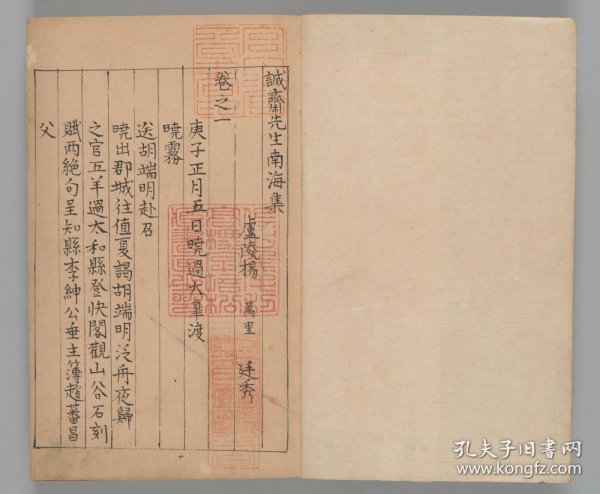 誠齋先生南海集
廬陵楊 萬里 廷秀
卷之一
庚子正月五日曉過大臯渡
曉霧
送胡端明赴召
曉出郡城往值夏謁胡端明泛舟夜歸
之官五羊過太和縣登快閣觀山谷石刻
賦兩絶句呈知縣李紳公垂主簿趙蕃昌
父
孔夫子旧书网
www.kongfz.com